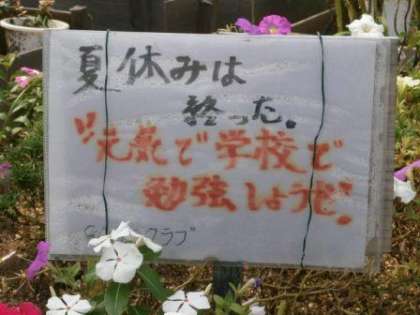 夏休みは
終った。
"元気で学校で
勉強しようぜ!
クラブ